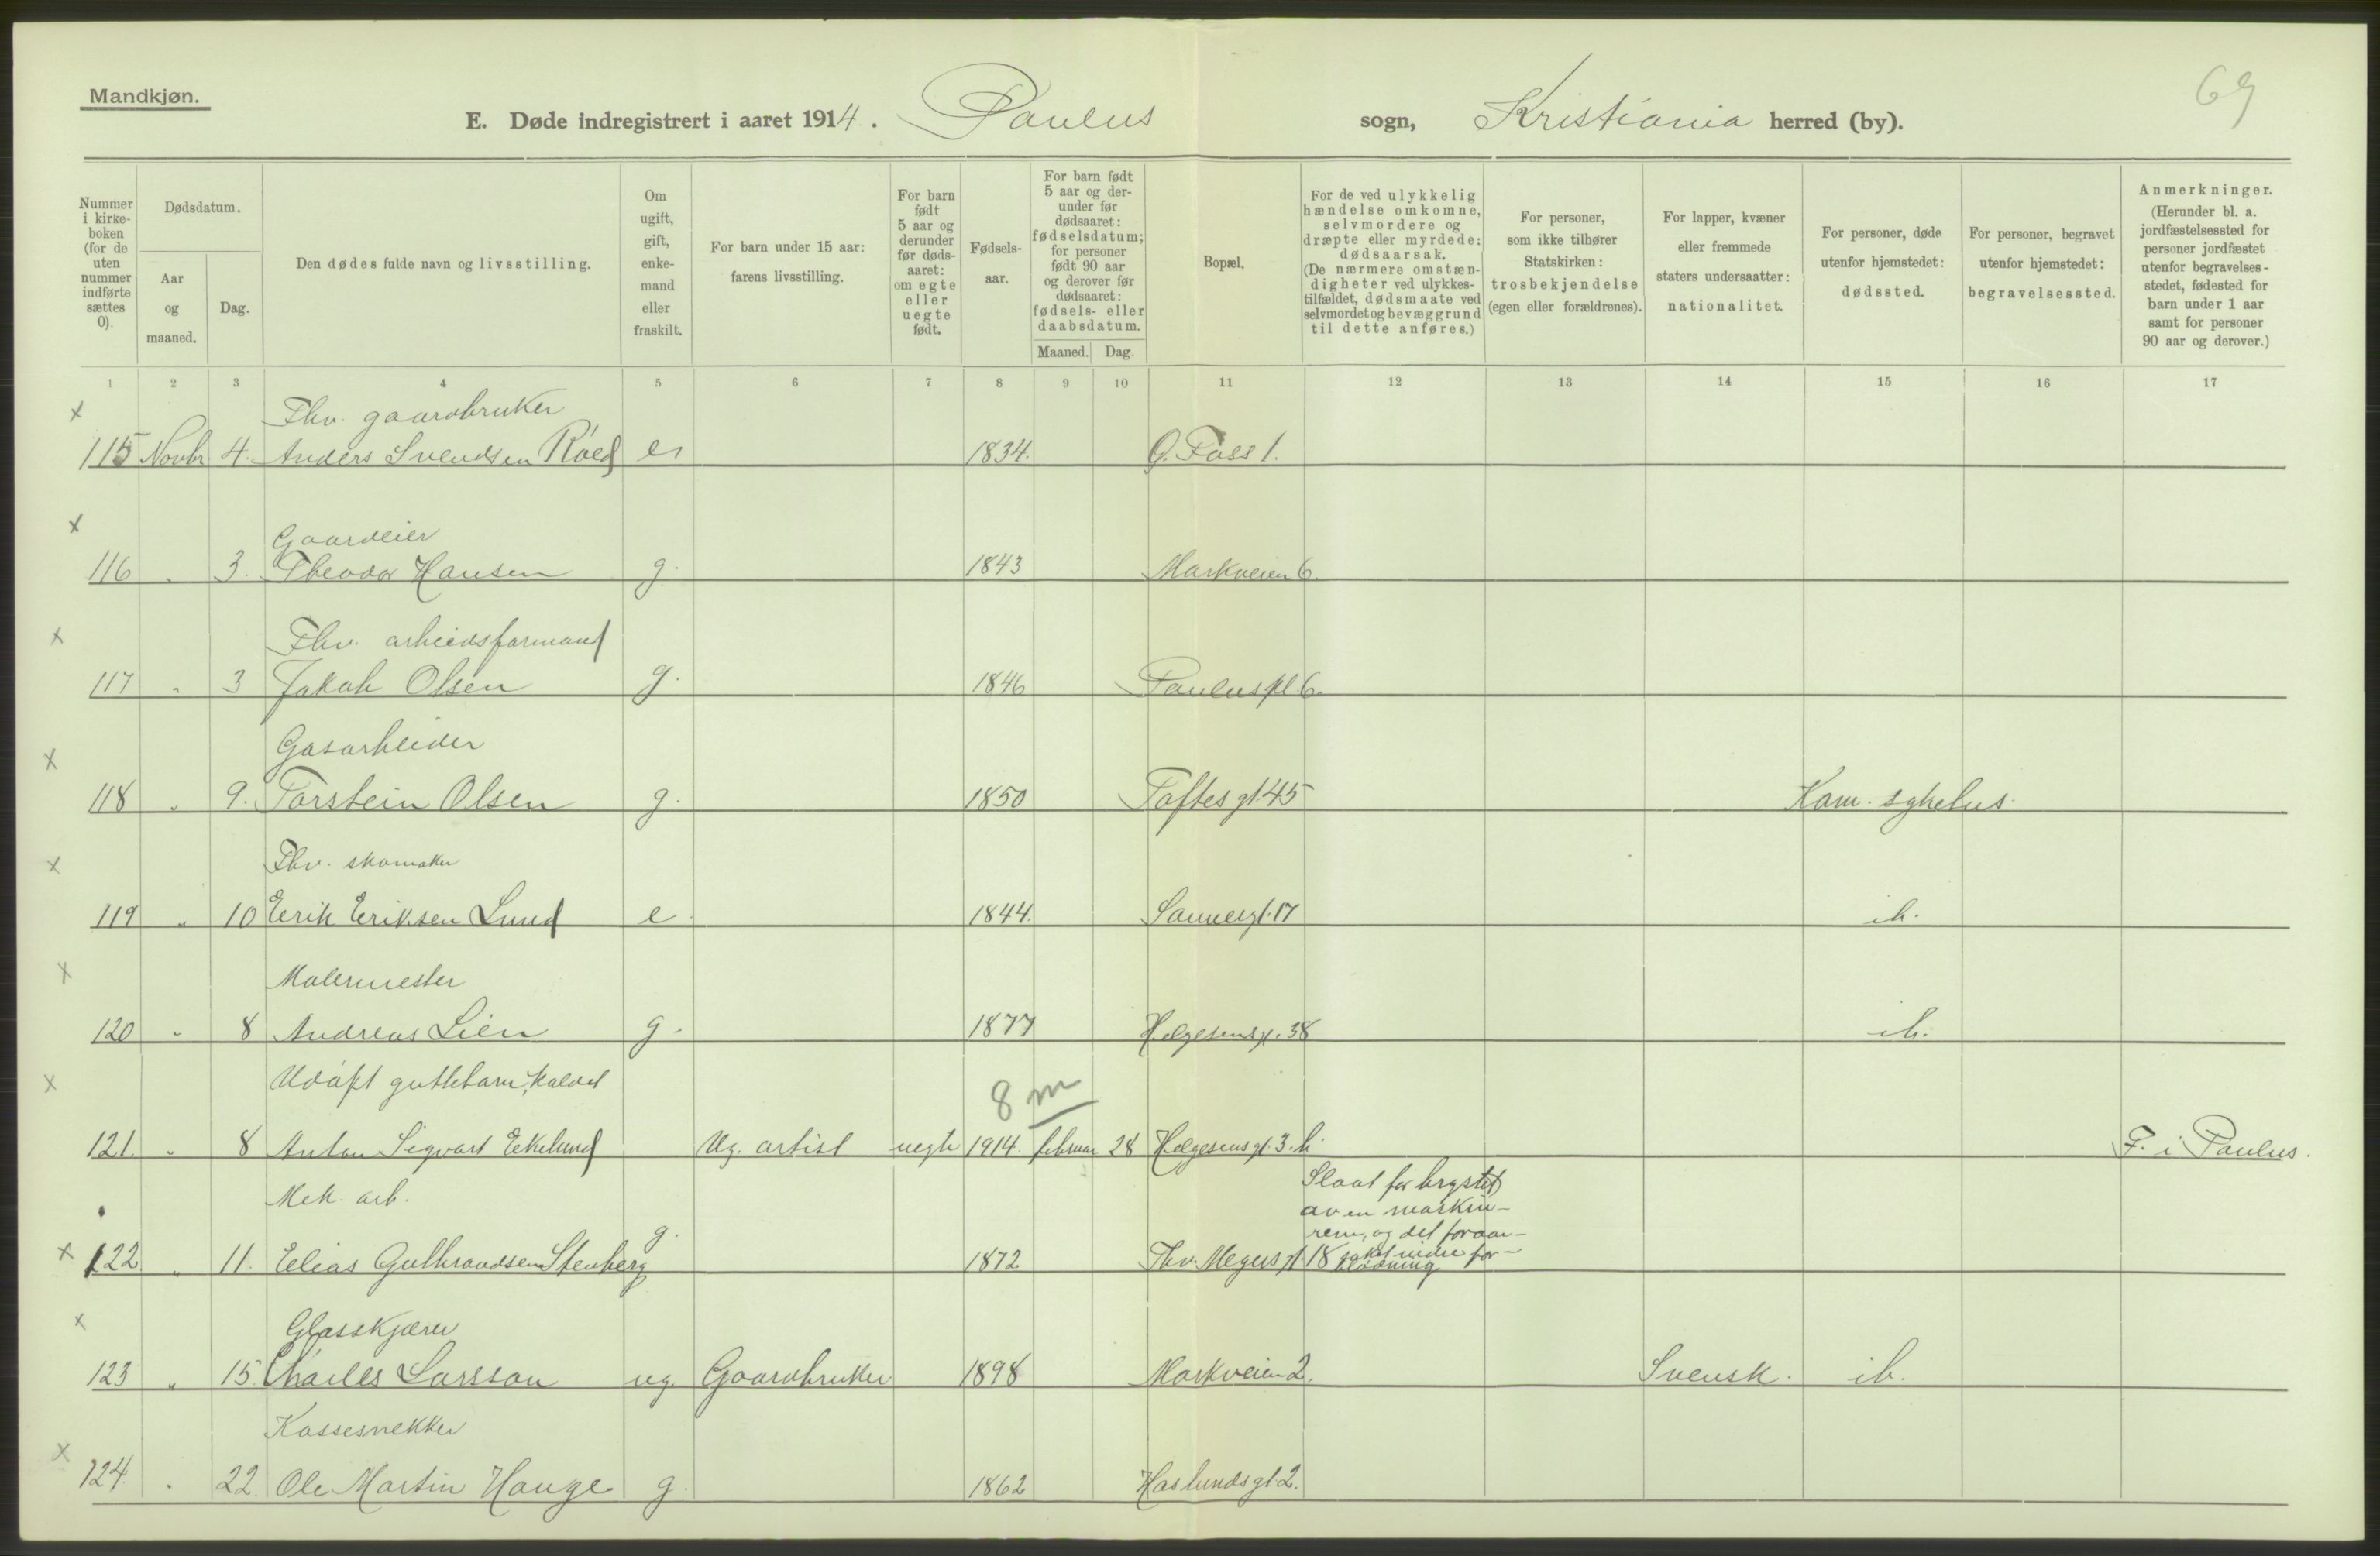 Mandkjøn.
69
E. Døde indregistrert i aaret 1914. Paulus sogn, Kristiania herred (by).
Nummer i kirkeboken (for de uten nummer indførte sættes 0).
Dødsdatum.
Aar og maaned.
Dag.
Den dødes fulde navn og livsstilling.
Om ugift, gift, enkemand eller fraskilt.
For barn under 15 aar: farens livsstilling.
For barn født 5 aar og derunder før dødsaaret: om egte eller uegte født.
Fødselsaar.
For barn født 5 aar og derunder før dødsaaret: fødselsdatum; for personer født 90 aar og derover før dødsaaret: fødsels- eller daabsdatum.
Maaned. Dag.
Bopæl.
For de ved ulykkelig hændelse omkomne, selvmordere og dræpte eller myrdede: dødsaarsak. (De nærmere omstændigheter ved ulykkestilfældet, dødsmaate ved selvmordet og bevæggrund til dette anføres.)
For personer, som ikke tilhører Statskirken: trosbekjendelse (egen eller forældrenes).
For lapper, kvæner eller fremmede staters undersaatter: nationalitet.
For personer, døde utenfor hjemstedet: dødssted.
For personer, begravet utenfor hjemstedet: begravelsessted.
Anmerkninger. (Herunder bl. a. jordfæstelsessted for personer jordfæstet utenfor begravelsesstedet, fødested for barn under 1 aar samt for personer 90 aar og derover.)
1 2 3 4 5 6 7 8 9 10 11 12 13 14 15 16 17
x Fhv. gaardbruker
115 Novbr 4. Anders Svendsen Röed e 1834. G. Foss 1.
x Gaardeier
116 " 3. Theodor Hansen g. 1843 Markveien 6.
x Fhv. arbeidsformand
117 " 3 Jakob Olsen g. 1846 Pauluspl. 6.
x Gasarbeider
118 " 9. Torstein Olsen g. 1850 Toftes gt. 45 Kom. sykehus.
x Fhv. skomaker
119 " 10 Eerik Eriksen Lund e 1844. Sannergt. 17 ib.
x Malermester
120 " 8 Andreas Lien g. 1877 Helgesensgt. 38 ib.
x Udøpt guttebarn, kaldet
8 m
121. " 8 Anton Sigvart Eekelund Ug. artist uegte 1914. februar 28 Helgesens gt. 3. b. F. i Paulus.
Mek. arb.
Slaat for brystet
av en maskin-
rem, og det foraar-
x 122 " 11. Elias Gulbrandsen Stenberg g. 1872 Thv. Meyers gt. 18 saket indre for-
blødning
x Glasskjærer
123 " 15. Charles Larsson ug. Gaardbruker 1898 Markveien 2. Svensk. ib.
Kassesnekker
x 124. " 22. Ole Martin Hauge g. 1862 Haslunds gt. 2.